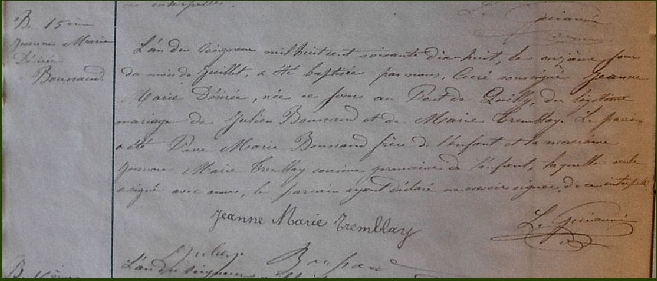 B. 15ème
Jeanne Marie
Désirée
Bounaud
L'an du Seigneur mil huit cent soixante dix huit, le onzième jour
du mois de Juillet, a été baptisée par nous, Curé soussigné Jeanne
Marie Désirée, née ce jour au Pont de Quilly, du légitime
mariage de Julien Bounaud et de Marie Tremblay. Le parrain
a été Pierre Marie Bounaud frère de l'enfant et la marraine
Jeanne Marie Tremblay cousine germaine de l'enfant, laquelle seule
a signé avec nous, le parrain ayant déclaré ne savoir signer, de ce interpellé
Jeanne Marie Tremblay
L'an du Seigneur